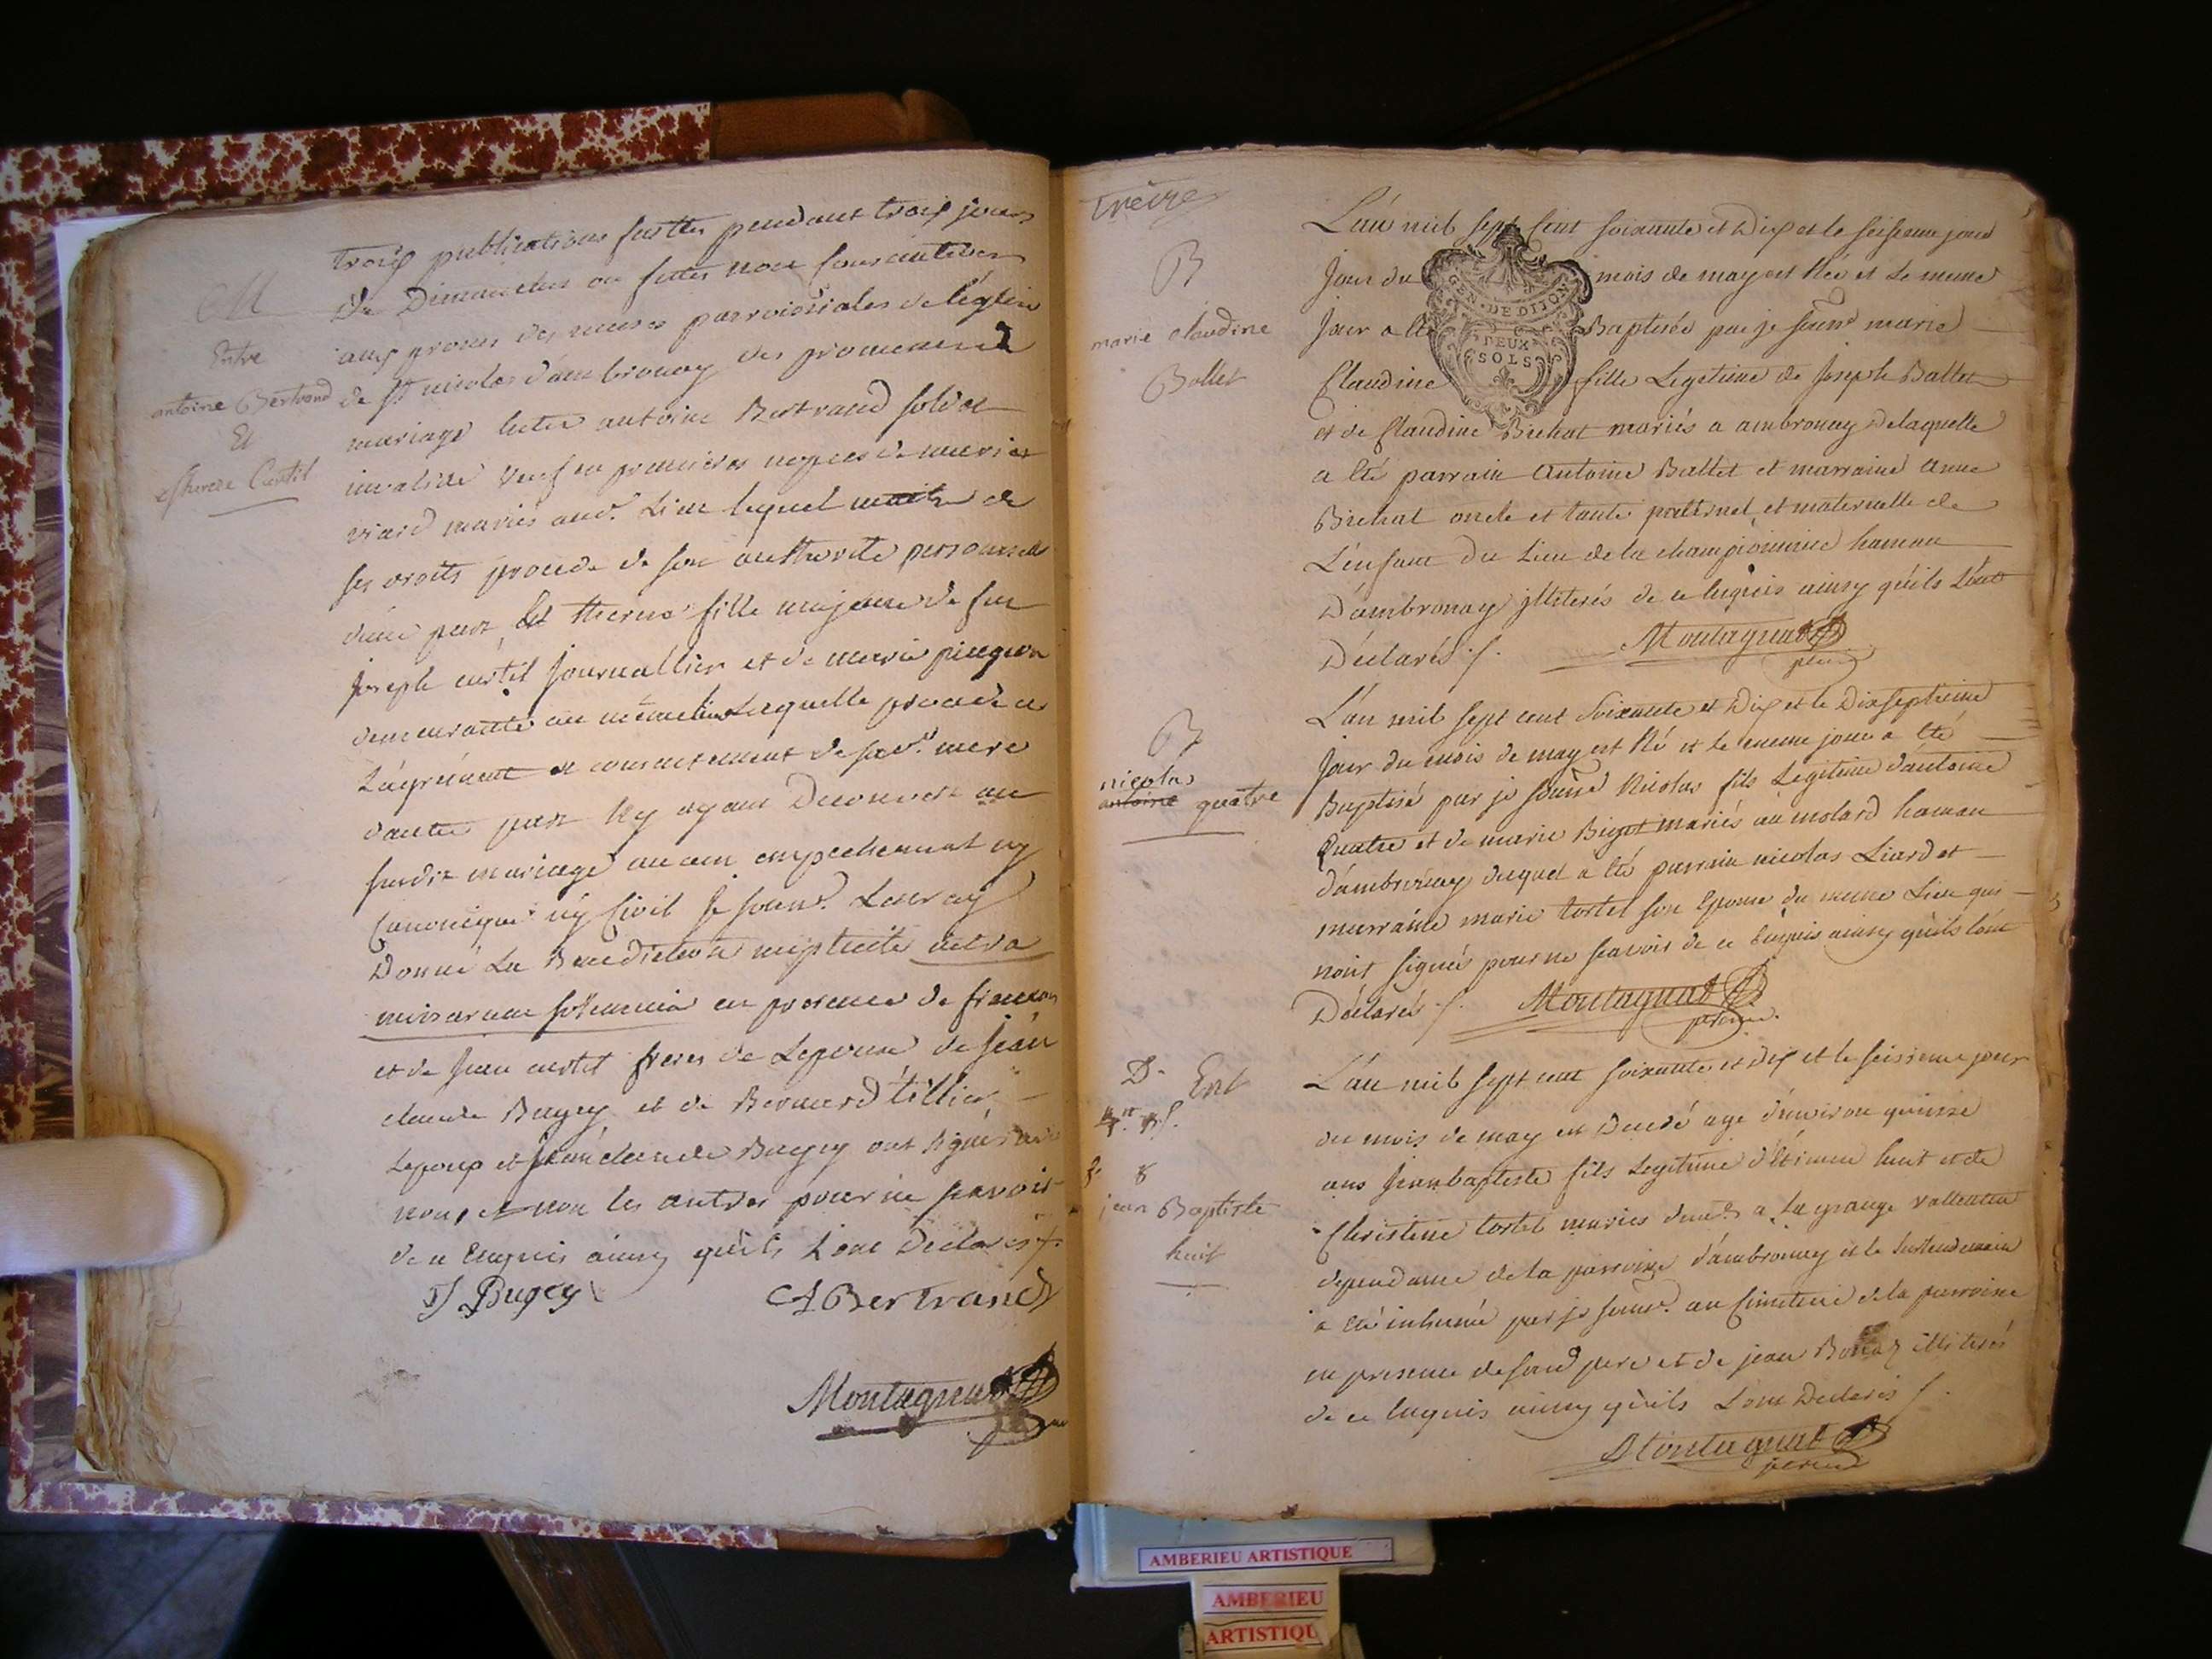 M
Entre
antoine Bertrand
Et
etherese Curtil
trois publications faittes pendant trois jours
de Dimanches ou fettes non consecutives
aux prones des messes parroissiales de l'église
de st nicolas d'ambronay des promesses de
mariage entre antoine Bertrand soldat
invalide veuf en premieres nopces de marie
viard mariés aud. Lieu lequel maitre de
ses droits procede de son authorité personnelle
d'une part Et therese fille majeure de feu
Joseph curtil Journallier et de marie
demeurante au même lieu Laquelle procede de
L'agrément et consentement de sad. mere
d'autre part N'y ayant Decouvert au
susdit mariage aucun empechement ny
Canonique ny Civil Je souss. Leur ay
Donné La Benediction nuptialle
missarum solemnia en presence de francois
et de Jean curtil freres de Lepouse de Jean
claude Bugey et de Bernard tillier
Lepoux et Jean claude Bugey ont signés avec
nous et non les autres pour ne scavoir
de ce Enquis ainsy qu'ils L'ont Declarés
J Bugey
A Bertrand
Montagnat
treize
B
marie claudine
Ballet
L'an mil sept cent soixante et Dix et le seisieme jour
Jour du mois de may est Née et Le meme
Jour a été Baptisée par je souss. marie
Claudine fille Legitime de Joseph Ballet
et de Claudine Bichat mariés a ambronay De laquelle
a été parrain Antoine Ballet et marraine anne
Bichat oncle et tante paternel et maternelle de
L'enfant du Lieu de la championiere hamau
D'ambronay illiterés de ce Enquis ainsy qu'ils L'ont
Déclarés
Montagnat
GEN. DE DIJON
DEUX
SOLS
B
nicolas
antoine quatre
L'an mil sept cent Soixante et Dix et le Dixseptieme
Jour du mois de may est Né et le meme jour a été
Baptisé par je souss. Nicolas fils Legitime d'antoine
Quatre et de marie Bigot mariés au molard hamau
d'ambronay duquel a été parrain nicolas Liard et
marraine marie tortel son Epouse du meme Lieu qui
n'ont signé pour ne scavoir de ce Enquis ainsy qu'ils l'ont
Déclarés
Montagnat
D.
Ent
jean Baptiste
huit
L'an mil sept cent soixante et dix et le seisieme jour
du mois de may est Decedé age d'environ quinze
ans Jean baptiste fils Legitime d'Etienne huit et de
Christine tortel mariés a La grange
dependance de la parroisse d'ambronay et le surlendemain
a été inhumé par je souss. au Cimetiere de la parroisse
en presence de son pere et de jean illiterés
de ce Enquis ainsy qu'ils L'ont Declarés
Montagnat
AMBERIEU ARTISTIQUE
AMBERIEU
ARTISTIQU